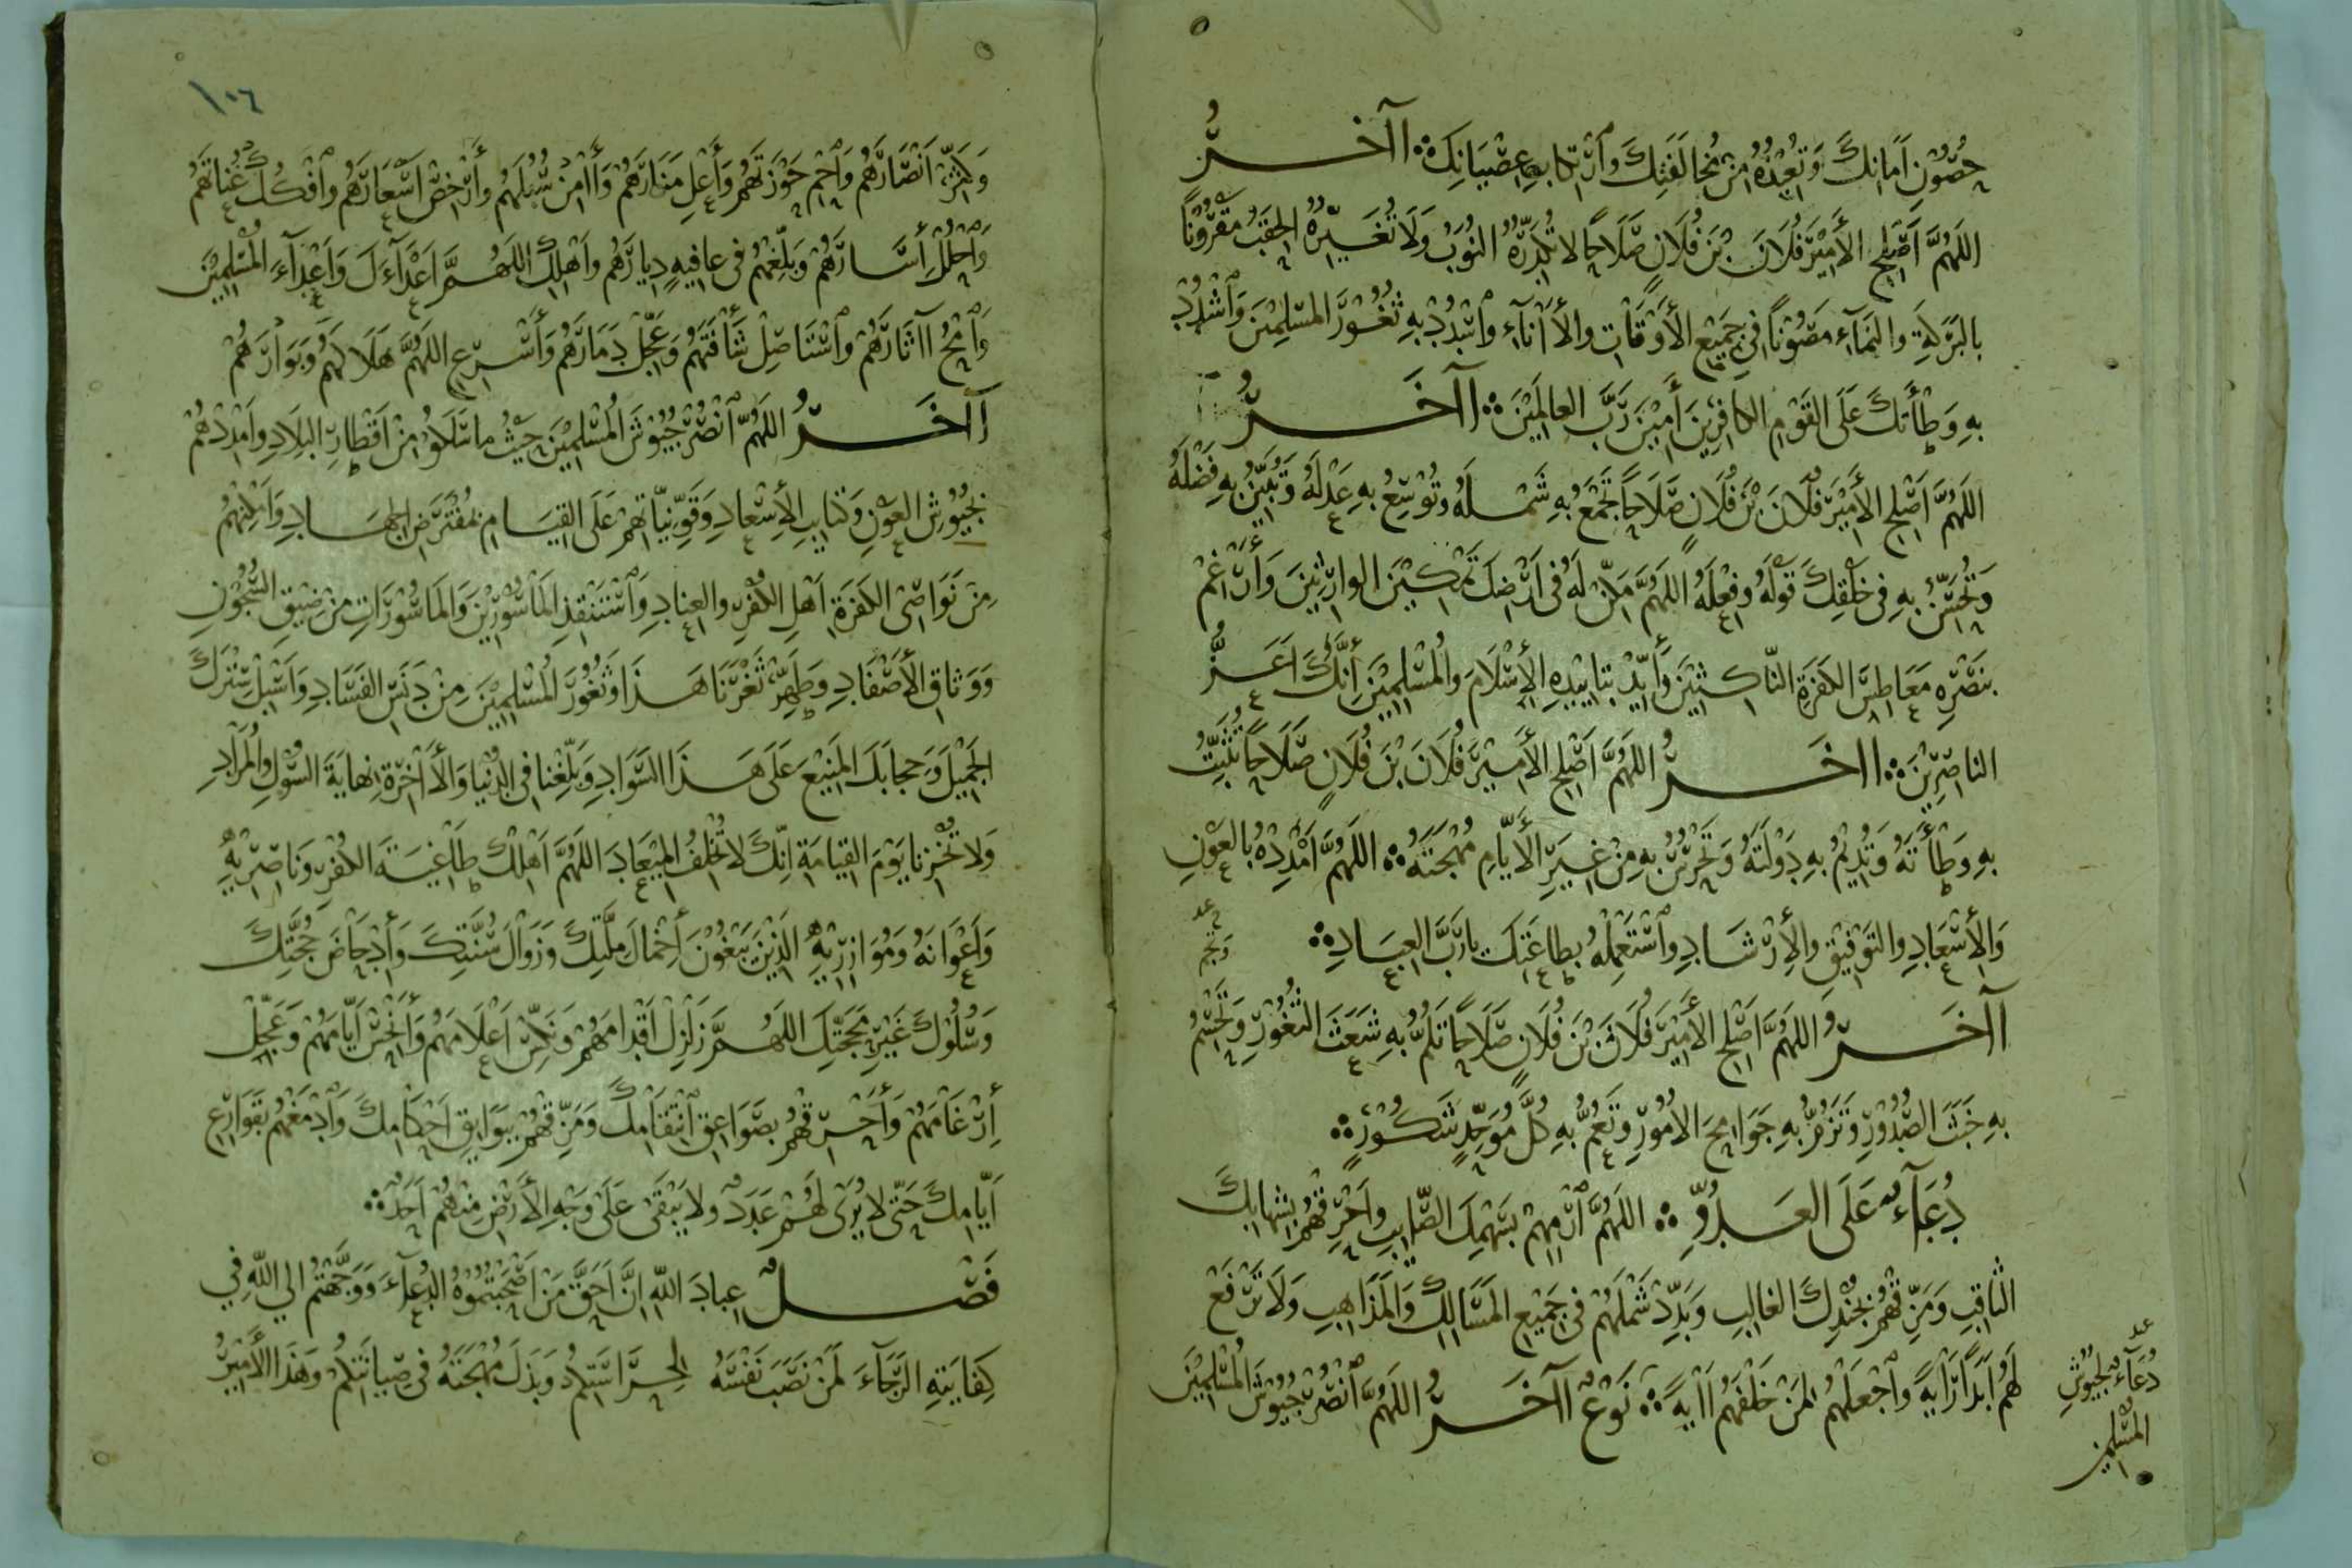 حُصُونِ اَمَانِكَ وَتُعِيْذُهُ مِنْ مُخَالَفَتِكَ وَاَرْتِكَابِهِ عِصْيَانِكَ ∴ اآخَــرُ
اللَهُمَّ اَصْلِحِ الأَمِيْرَ فُلَانَ بْنَ فُلَانٍ صَلَاحًا لا تُكَدِّرُهُ النُوَبُ وَلَا تُغَيِّرُهُ الحِقَبُ مَقْرُوْنًا
بِالبَرَكَةِ والنَمَآءِ مَصُوْنًا فِى جَمِيْعِ الأَوْقَاتِ والأَانَآءِ وٱسْدُدْ بِهِ ثُغُوْرَ المسْلِمِيْنَ وَٱشْدُدْ
بِهِ وَطْأَتَكَ عَلَى القَوْمِ الكَافِرِيْنَ أَمِيْنَ رَبَّ العالَمِيْنَ ∴ اآخَــرُ
اللَهُمَّ اَصْلِحِ الأَمِيْرَ فُلَانَ بْنَ فُلَانٍ صَلَاحًا تَجْمَعُ بِهِ شَمْلَهُ وتُوْسِّعُ بِهِ عَدْلَهُ وَتُبَيِّنُ بِهِ فَضْلَهُ
وَتُحَسِّنُ بِهِ فى خَلْقِكَ قَوْلَهُ وفِعْلَهُ اللَهُمَّ مَكِّنْ لَهُ فى أَرْضِكَ تَمْكِيْنَ الوارِثِيْنَ وَأَرْغِمْ
بِنَصْرِهِ مَعَاطِسَ الكَفَرَةِ النَّاكِثِيْنَ وَأَيِّدْ بِتَايِيْدِهِ الإِسْلَامَ والمُسْلِمِيْنَ إِنَّكَ اَعَزُّ
الناصِرِيْنَ ∴ ااخَــرُ اللَهُمَّ اَصْلِحِ الأَمِيْرَ فُلَانَ بْنَ فُلَانٍ صَلَاحًا تُثَبِّتُ
بِهِ وَطْأَتَهُ وَتُدِيْمُ بِهِ دَوْلَتَهُ وَتَحْرُسُ بِهِ مِنْ غِيَرِ الأَيَّامِ مُهْجَتَهُ ∴ اللَهُمَّ اَمْدِدْهُ بِالعَوْنِ
وَالإِسْعَادِ والتَوْفِيْقِ والإِرْشَادِ وٱسْتَعْمِلْهُ بِطاعَتِكَ يارَبَّ العِبَادِ ∴
اآخَــرُ اللَهُمَّ اَصْلِحِ الأَمِيْرَ فُلَانَ بْنَ فُلَانٍ صَلَاحًا تَلُمُّ بِهِ شَعَثَ الثُغُوْرِ وَتَحْسِمُ
بِهِ خَبَثَ الصُدُوْرِ وَتَزُمُّ بِهِ جَوَامِحَ الأُمُوْرِ وَتَعُمُّ بِهِ كُلَّ مُوَحِّدٍ شَكُوْرٍ ∴
دُعَآءٌ عَلَى العَدُوِّ ∴ اللَهُمَّ ٱرْمِهِمْ بِسَهْمِكَ الصَّايِبِ واَحْرِقْهُمْ بِشِهابِكَ
الثاقِبِ وَمَزِّقْهُمْ بِجُنْدِكَ الغالِبِ وَبَدِّدْ شَمْلَهُمْ فى جَمِيْعِ المَسَالِكِ وَالمَذَاهِبِ وَلَا تَرْفَعْ
لَهُمْ اَبَدًا رَايَةً وٱجْعَلْهُمْ لِمَنْ خَلْفَهُمْ اايَةً ∴ نَوْعٌ اآخَــرُ اللَهُمَّ ٱنْصُرْ جُيُوْشَ المُسْلِمِيْنَ
دُعَآءٌ لجُيُوْشِ
المُسْلِمين
١٠٦
وَكَثِّرْ اَنْصَارَهُمْ وٱحْمِ حَوْزَتَهُمْ وَأَعْلِ مَنَارَهُمْ وَأَامِنْ سُبُلَهُمْ وأَرْخِصْ اَسْعَارَهُمْ وٱفْكُكْ عُنَاتَهُمْ
وَٱحْلُلْ أَسَارَهُمْ وَبَلِّغْهُمْ فى عافِيةٍ دِيارَهُم واَهْلِكِ اللَهُمَّ اَعْدَآءَكَ وَاَعْدَآءَ المُسْلِمِيْنَ
وَٱمْحُ اآثَارَهُمْ وٱسْتَاصِلْ شَأْفَتَهُمْ وَعَجِّلْ دَمَارَهُم وَأَسْرِعِ اللَهُمَّ هَلَاكَهُمْ وَبَوَارَهُمْ
اآخَــرُ اللَهُمَّ ٱنْصُرْ جُيُوْشَ المُسْلِمِيْنَ حَيْثُ ما سَلَكُوْا مِنْ اَقْطَارِ البِلَادِ واَمْدِدْهُمْ
بِجُيُوْشِ العَوْنِ وَكَتايِبِ الإِسْعادِ وَقَوِّ نِيَّاتِهِمْ عَلَى القِيَامِ بِمُفْتَرَضِ الجِهَادِ وَاَمْكِنْهُمْ
مِنْ نَوَاصِى الكَفَرَةِ اَهْلِ الكُفْرِ والعِنادِ وَٱسْتَنْقِذِ المَاسُوْرِيْنَ وَالمَاسُوْرَاتِ مِنْ ضِيْقِ السُّجُوْنِ
وَوَثاقِ الأَصْفَادِ وطَهِّرْ ثَغْرَنَا هَذَا وَثُغُوْرَ المُسْلِمِيْنَ مِنْ دَنَسِ الفَسَادِ وَاَسْبِلْ سِتْرَكَ
الجَمِيْلَ وَحِجابَكَ المَنِيْعَ عَلَى هَذَا السَّوَادِ وَبَلِّغْنا فى الدُّنْيا وَالأَاخِرَةِ نِهايَةَ السُّوْلِ والمُرَادِ
وَلا تُخْزِنا يَوْمَ القِيَامَةِ اِنَّكَ لا تُخْلِفُ المِيْعَادَ اللَهُمَّ اَهْلِكْ طاغِيَةَ الكُفْرِ وَناصِرِيْهِ
وَاَعْوَانَهُ وَمُوَازِرِيْهِ الذِيْنَ يَبْغُوْنَ إِخْمَالَ مِلَّتِكَ وَزَوَالَ سُنَّتِكَ وَإِدْحَاضَ حُجَّتِكَ
وَسُلُوْكَ غَيْرِ مَحَجَّتِكَ اللَهُمَّ زَلْزِلْ اَقْدامَهُمْ وَنَكِّسْ اَعْلَامَهُمْ وَأَنْحِسْ اَيَّامَهُمْ وَعَجِّلْ
إِرْغَامَهُمْ وَأَحْرِقْهُمْ بِصَوَاعِقِ ٱنْتِقَامِكَ وَمَزِّقْهُمْ بِبَوَايِقِ اَحْكَامِكَ وَٱدْمَغْهُمْ بِقَوَارِعِ
اَيَّامِكَ حَتَّى لا يُرَى لَهُمْ عَدَدٌ ولا يَبْقَى عَلَى وَجْهِ الأَرْضِ مِنْهُمْ اَحَدٌ ∴
فَصْــلٌ عِبادَ اللّهِ اِنَّ اَحَقَّ مَنْ اَصْحَبْتُمُوْهُ الدُعآءَ وَوَجَّهْتُمْ الى اللّهِ فِي
كِفايَتِهِ الرَّجآءَ لَمَنْ نَصَبَ نَفْسَهُ لِحِرَاسَتِكُمْ وَبَذَلَ مُهْجَتَهُ فى صِيانَتِكُمْ وَهَذَا الأَمِيْرُ